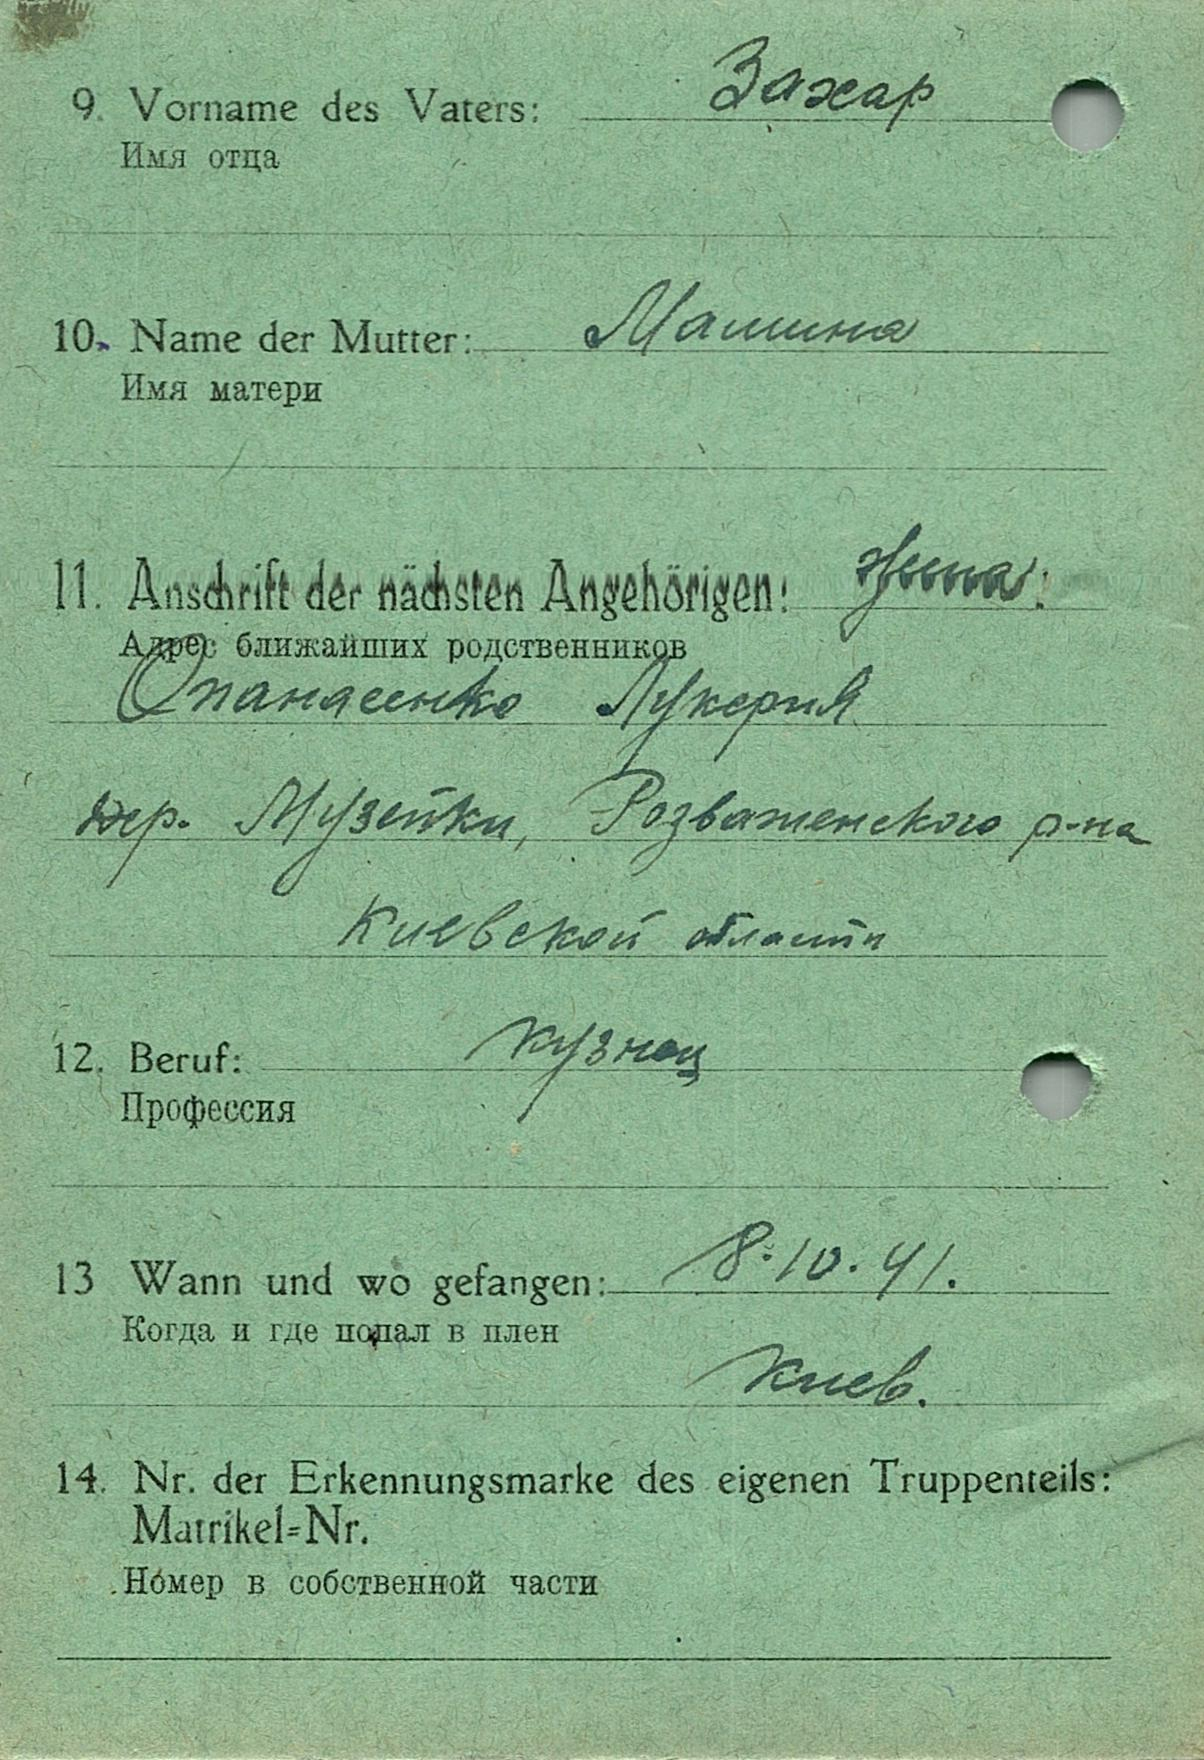 9. Vorname des Vaters: Захар
Имя отца
10. Name der Mutter:
Имя матери
11. Anschrift der nächsten Angehörigen: жена:
Адрес ближайших родственников
Опанасенко Лукерия
дер. Музейки, Розваженского р-на
Киевской области
12. Beruf: кузнец
Профессия
13 Wann und wo gefangen: 8.10.41.
Когда и где попал в плен
Киев.
14. Nr. der Erkennungsmarke des eigenen Truppenteils:
Matrikel=Nr.
Номер в собственной части